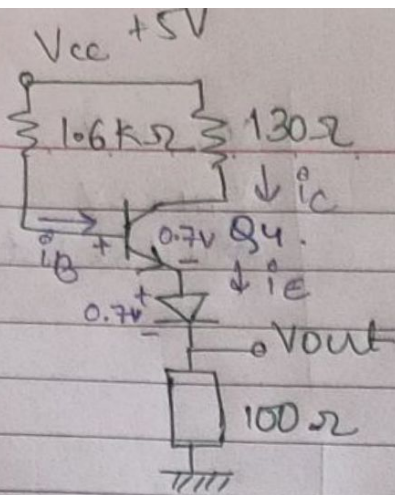 Vcc +5V
1.6KΩ 130Ω
↓ ic
+ 0.7V Q4.
iB - ↓ iE
0.7V +
-
Vout
100Ω